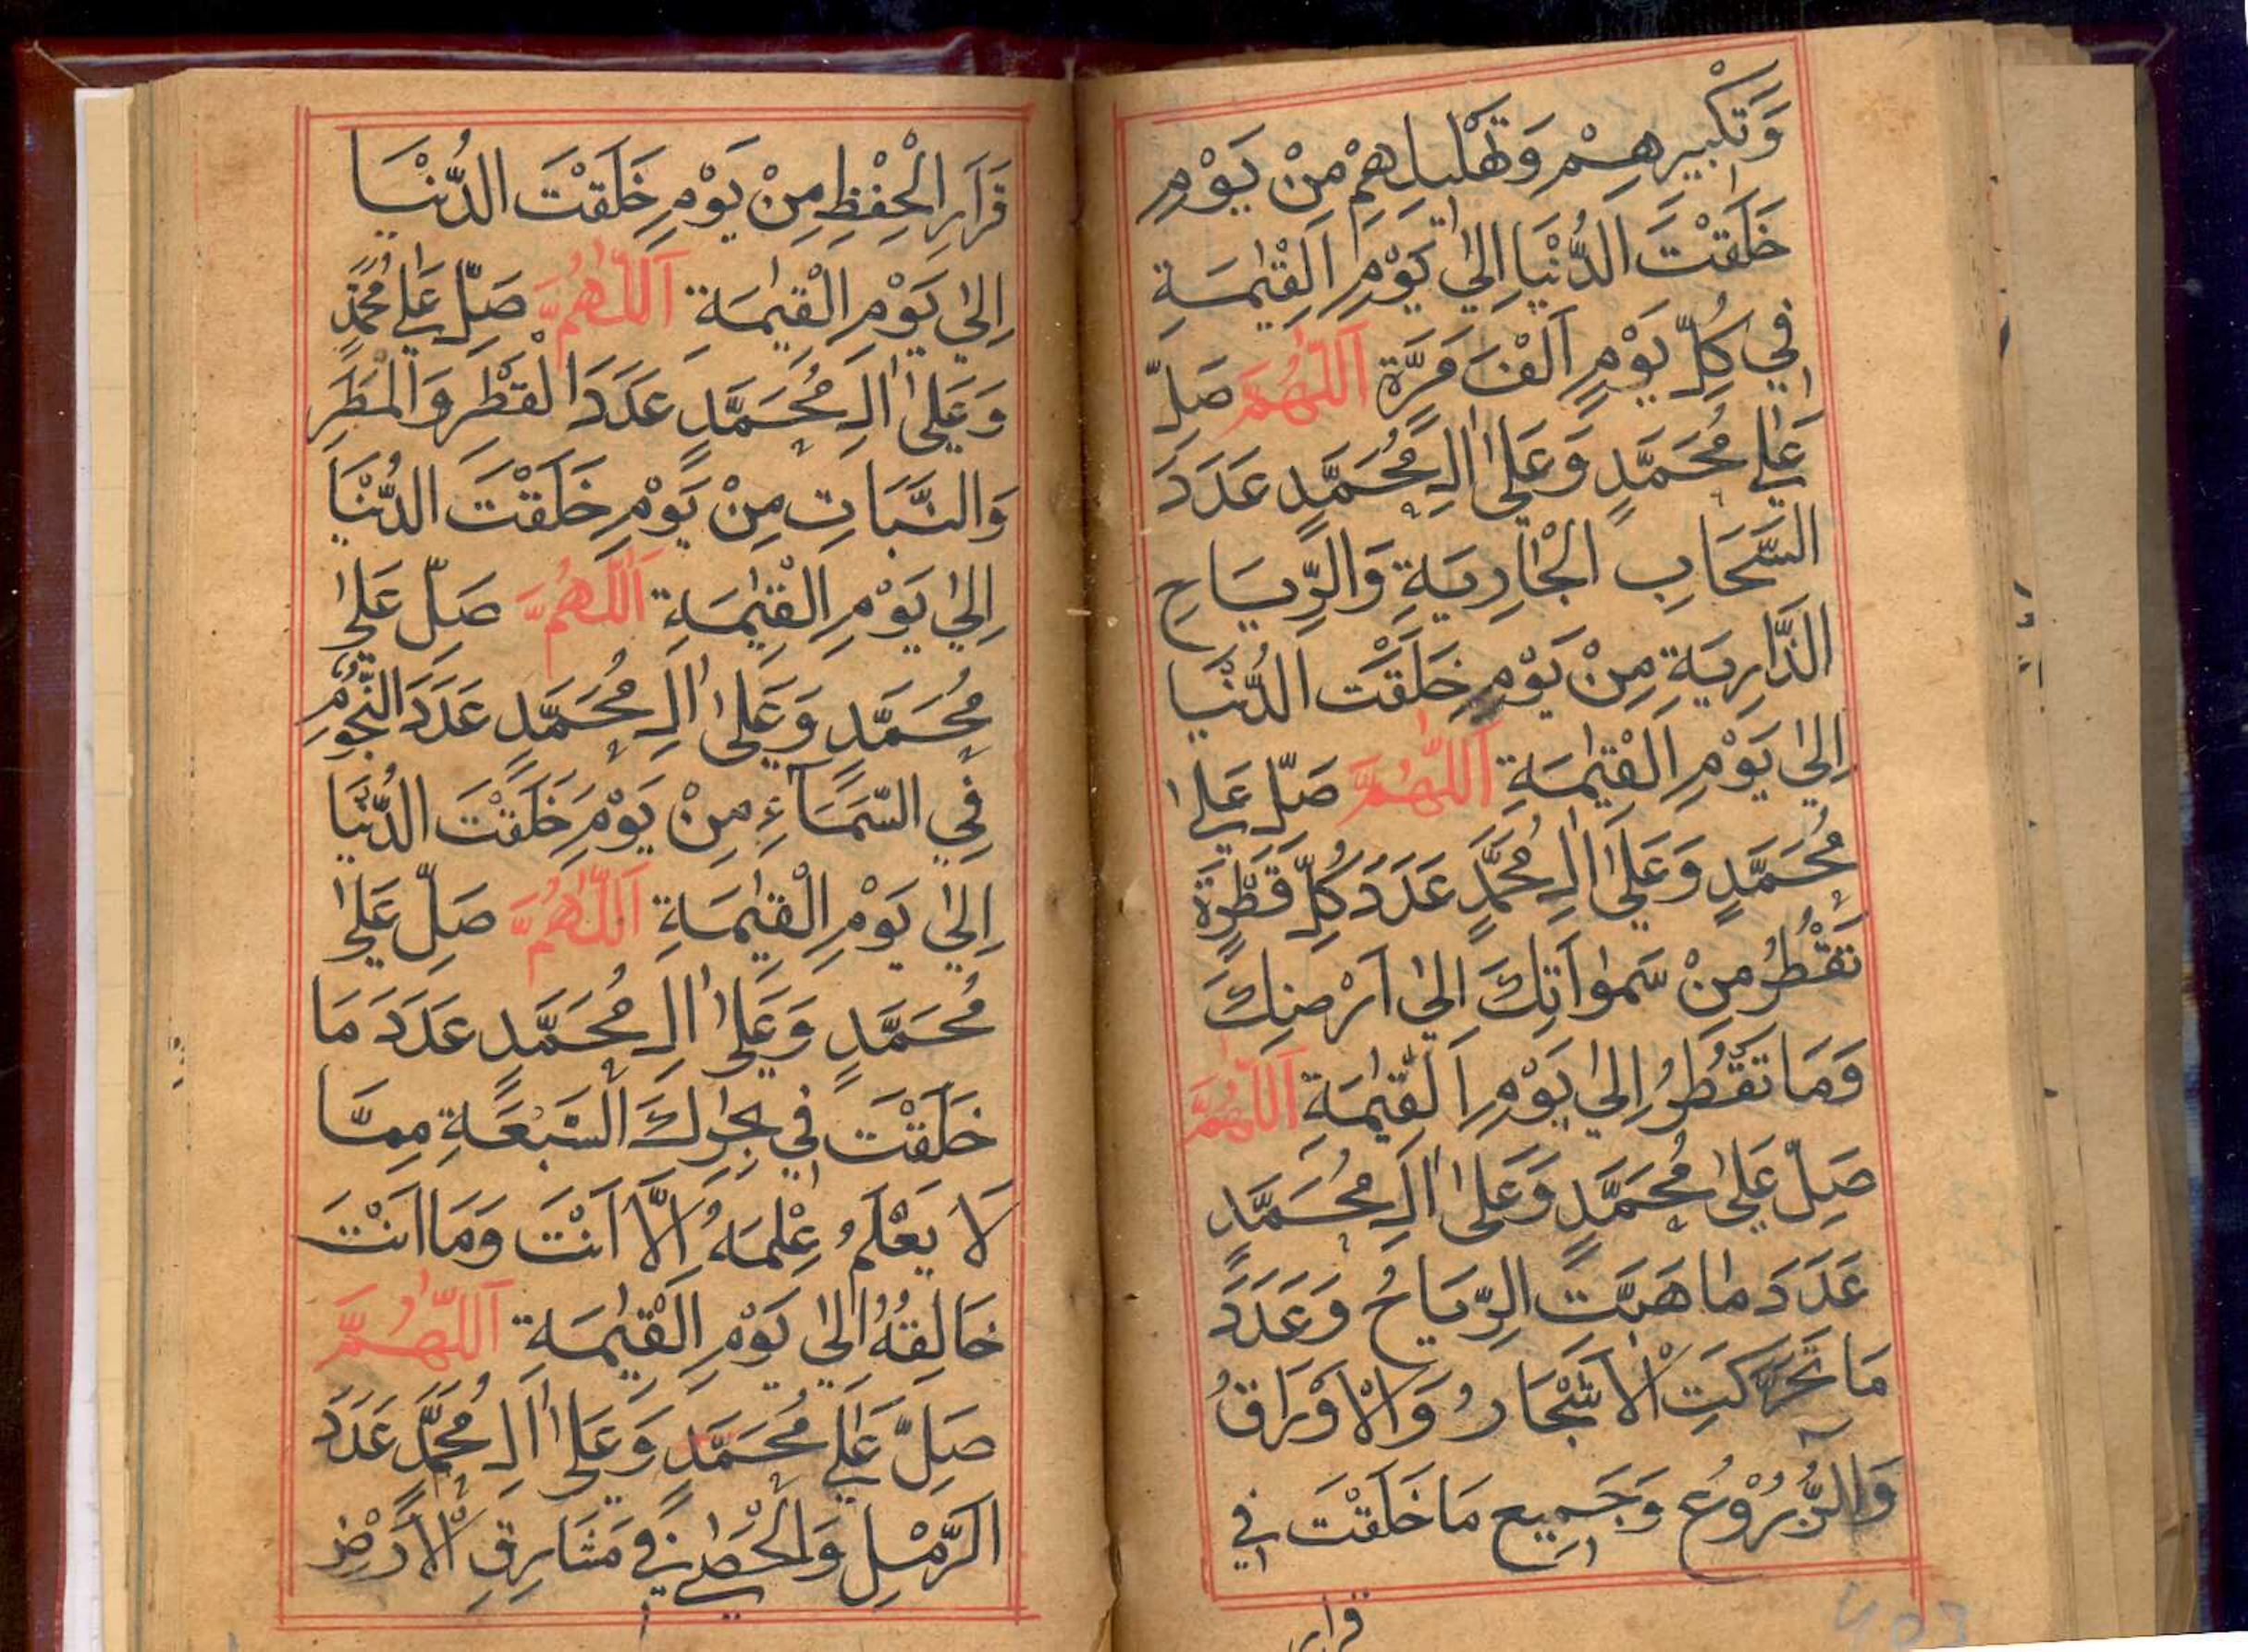 وَتَكْبِيرِهِمْ وَتَهْلِيلِهِمْ مِنْ يَوْمِ
خَلَقْتَ الدُّنْيَا اِلىٰ يَوْمِ الْقِيٰمَةِ
فِي كُلِّ يَوْمٍ اَلْفَ مَرَّةٍ اَللّٰهُمَّ صَلِّ
عَلٰى مُحَمَّدٍ وَعَلٰى اٰلِ مُحَمَّدٍ عَدَدَ
السَّحَابِ الْجَارِيَةِ وَالرِّيَاحِ
الذَّارِيَةِ مِنْ يَوْمِ خَلَقْتَ الدُّنْيَا
اِلىٰ يَوْمِ الْقِيٰمَةِ اَللّٰهُمَّ صَلِّ عَلٰى
مُحَمَّدٍ وَعَلٰى اٰلِ مُحَمَّدٍ عَدَدَ كُلِّ قَطْرَةٍ
تَقْطُرُ مِنْ سَمٰوَاتِكَ اِلىٰ اَرْضِكَ
وَمَا تَقْطُرُ اِلىٰ يَوْمِ الْقِيٰمَةِ اَللّٰهُمَّ
صَلِّ عَلىٰ مُحَمَّدٍ وَعَلٰى اٰلِ مُحَمَّدٍ
عَدَدَ مَا هَبَّتِ الرِّيَاحُ وَعَدَدَ
مَا تَحَرَّكَتِ الْاَشْجَارُ وَالْاَوْرَاقُ
وَالزُّرُوْعُ وَجَمِيعِ مَا خَلَقْتَ فِي
قرار
قَرَارِ الْحِفْظِ مِنْ يَوْمِ خَلَقْتَ الدُّنْيَا
اِلىٰ يَوْمِ الْقِيٰمَةِ اَللّٰهُمَّ صَلِّ عَلٰى مُحَمَّدٍ
وَعَلٰى اٰلِ مُحَمَّدٍ عَدَدَ الْقَطْرِ وَالْمَطَرِ
وَالنَّبَاتِ مِنْ يَوْمِ خَلَقْتَ الدُّنْيَا
اِلىٰ يَوْمِ الْقِيٰمَةِ اَللّٰهُمَّ صَلِّ عَلٰى
مُحَمَّدٍ وَعَلٰى اٰلِ مُحَمَّدٍ عَدَدَ النُّجُوْمِ
فِي السَّمَآءِ مِنْ يَوْمِ خَلَقْتَ الدُّنْيَا
اِلىٰ يَوْمِ الْقِيٰمَةِ اَللّٰهُمَّ صَلِّ عَلٰى
مُحَمَّدٍ وَعَلٰى اٰلِ مُحَمَّدٍ عَدَدَ مَا
خَلَقْتَ فِي بِحَارِكَ السَّبْعَةِ مِمَّا
لَا يَعْلَمُ عِلْمَهُ اِلَّا اَنْتَ وَمَا اَنْتَ
خَالِقُهُ اِلىٰ يَوْمِ الْقِيٰمَةِ اَللّٰهُمَّ
صَلِّ عَلٰى مُحَمَّدٍ وَعَلٰى اٰلِ مُحَمَّدٍ عَدَدَ
الرَّمْلِ وَالْحَصٰى فِي مَشَارِقِ الْاَرْضِ